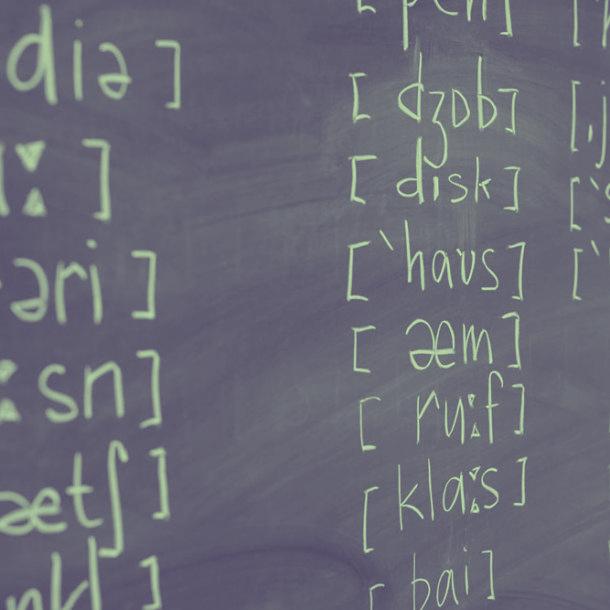 diə ]
ː ]
əri ]
ːsn ]
ætʃ ]
[ pen ]
[ dʒɒb ]
[ disk ]
[ ˋhaʊs ]
[ æm ]
[ ruːf ]
[ klaːs ]
[ bai ]